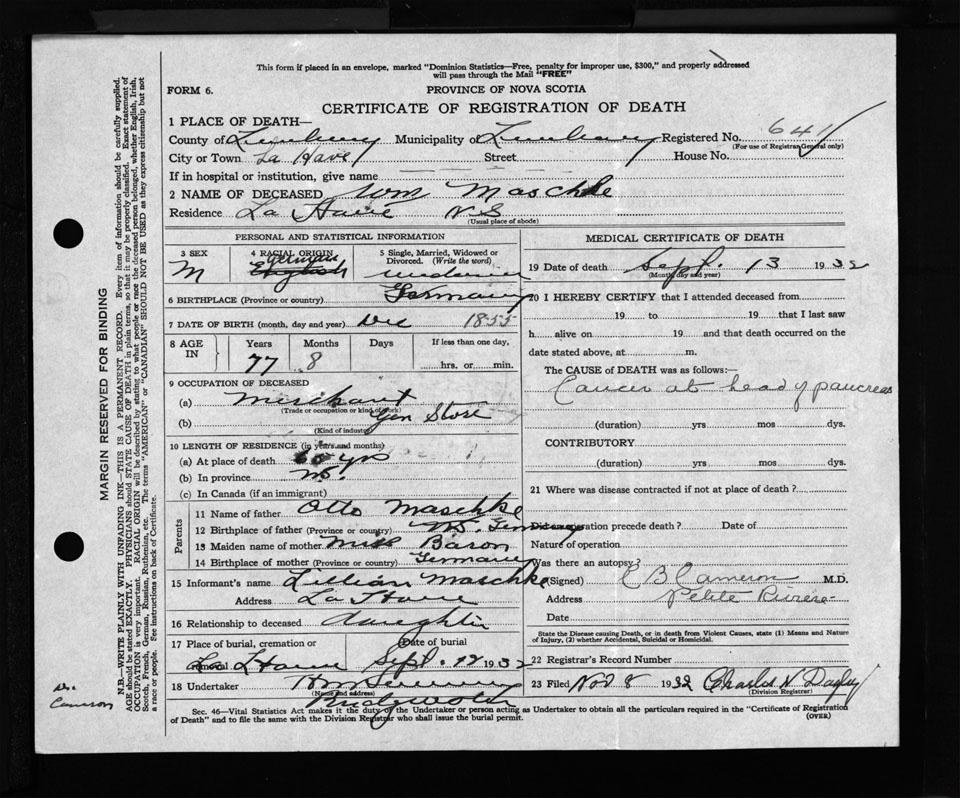 This form if placed in an envelope, marked "Dominion Statistics—Free, penalty for improper use, $300," and properly addressed
will pass through the Mail "FREE"
FORM 6.
PROVINCE OF NOVA SCOTIA
CERTIFICATE OF REGISTRATION OF DEATH
1 PLACE OF DEATH—
County of Lunenburg Municipality of Lunenburg Registered No. 641
(For use of Registrar General only)
City or Town La Have Street House No.
If in hospital or institution, give name
2 NAME OF DECEASED Wm Maschke
Residence La Have N S
(Usual place of abode)
PERSONAL AND STATISTICAL INFORMATION
3 SEX 4 RACIAL ORIGIN 5 Single, Married, Widowed or Divorced. (Write the word)
M English German widower
6 BIRTHPLACE (Province or country) Germany
7 DATE OF BIRTH (month, day and year) Dec 1855
8 AGE IN Years Months Days If less than one day,
77 8 hrs. or min.
9 OCCUPATION OF DECEASED
(a) Merchant
(Trade or occupation or kind of work)
(b) Gen Store
(Kind of industry)
10 LENGTH OF RESIDENCE (in years and months)
(a) At place of death 60 yrs
(b) In province
(c) In Canada (if an immigrant)
Parents
11 Name of father Otto Maschke
12 Birthplace of father (Province or country) Germany
13 Maiden name of mother Miss Baron
14 Birthplace of mother (Province or country) Germany
15 Informant's name Lillian Maschke
Address La Have
16 Relationship to deceased daughter
17 Place of burial, cremation or removal Date of burial
La Have Sept. 1932
18 Undertaker
(Name and address)
Bridgewater
MEDICAL CERTIFICATE OF DEATH
19 Date of death Sept. 13 1932
(Month, day and year)
20 I HEREBY CERTIFY that I attended deceased from
19 to 19 that I last saw
h alive on 19 and that death occurred on
date stated above, at m.
The CAUSE of DEATH was as follows:—
Cancer at head of pancreas
(duration) yrs mos dys.
CONTRIBUTORY
(duration) yrs mos dys.
21 Where was disease contracted if not at place of death?
Did an operation precede death? Date of
Nature of operation
Was there an autopsy?
(Signed) C B Cameron M.D.
Address Petite Riviere
Date
State the Disease causing Death, or in death from Violent Causes, state (1) Means and Nature
of Injury, (2) whether Accidental, Suicidal or Homicidal.
22 Registrar's Record Number
23 Filed Nov 8 1932 Charles N
(Division Registrar)
Sec. 46—Vital Statistics Act makes it the duty of the Undertaker or person acting as Undertaker to obtain all the particulars required in the "Certificate of Registration
of Death" and to file the same with the Division Registrar who shall issue the burial permit.
(OVER)
MARGIN RESERVED FOR BINDING
N.B.—WRITE PLAINLY WITH UNFADING INK—THIS IS A PERMANENT RECORD. Every item of information should be carefully supplied.
AGE should be stated EXACTLY. PHYSICIANS should STATE CAUSE OF DEATH in plain terms, so that it may be properly classified. Exact statement of
OCCUPATION is very important. RACIAL ORIGIN will be described by stating to what people or race the deceased person belonged, whether English, Irish,
Scotch, French, German, Russian, Ruthenian, etc. The terms "AMERICAN" or "CANADIAN" SHOULD NOT BE USED as they express citizenship but not
a race or people. See instructions on back of Certificate.
Dr.
Cameron